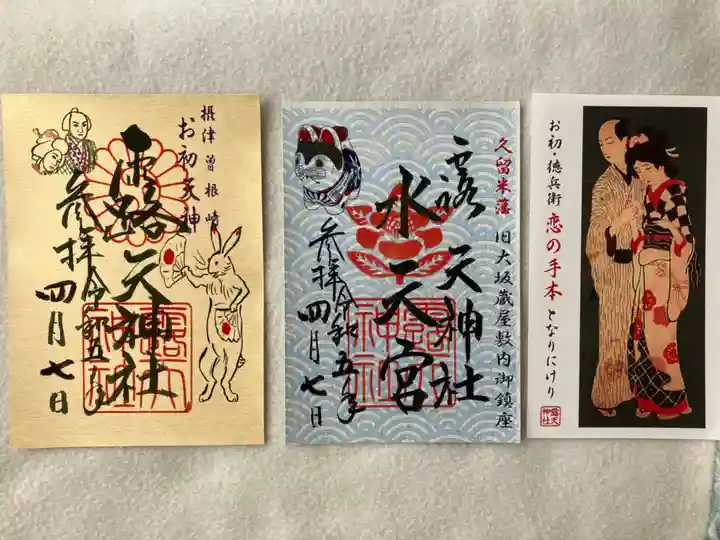 摂津曽根崎
お初天神
露天神社
参拝令和五年
四月七日
久留米藩
旧大坂蔵屋敷内御鎮座
露天神社
水天宮
参拝令和五年
四月七日
お初・徳兵衛
恋の手本
となりにけり
露天
神社